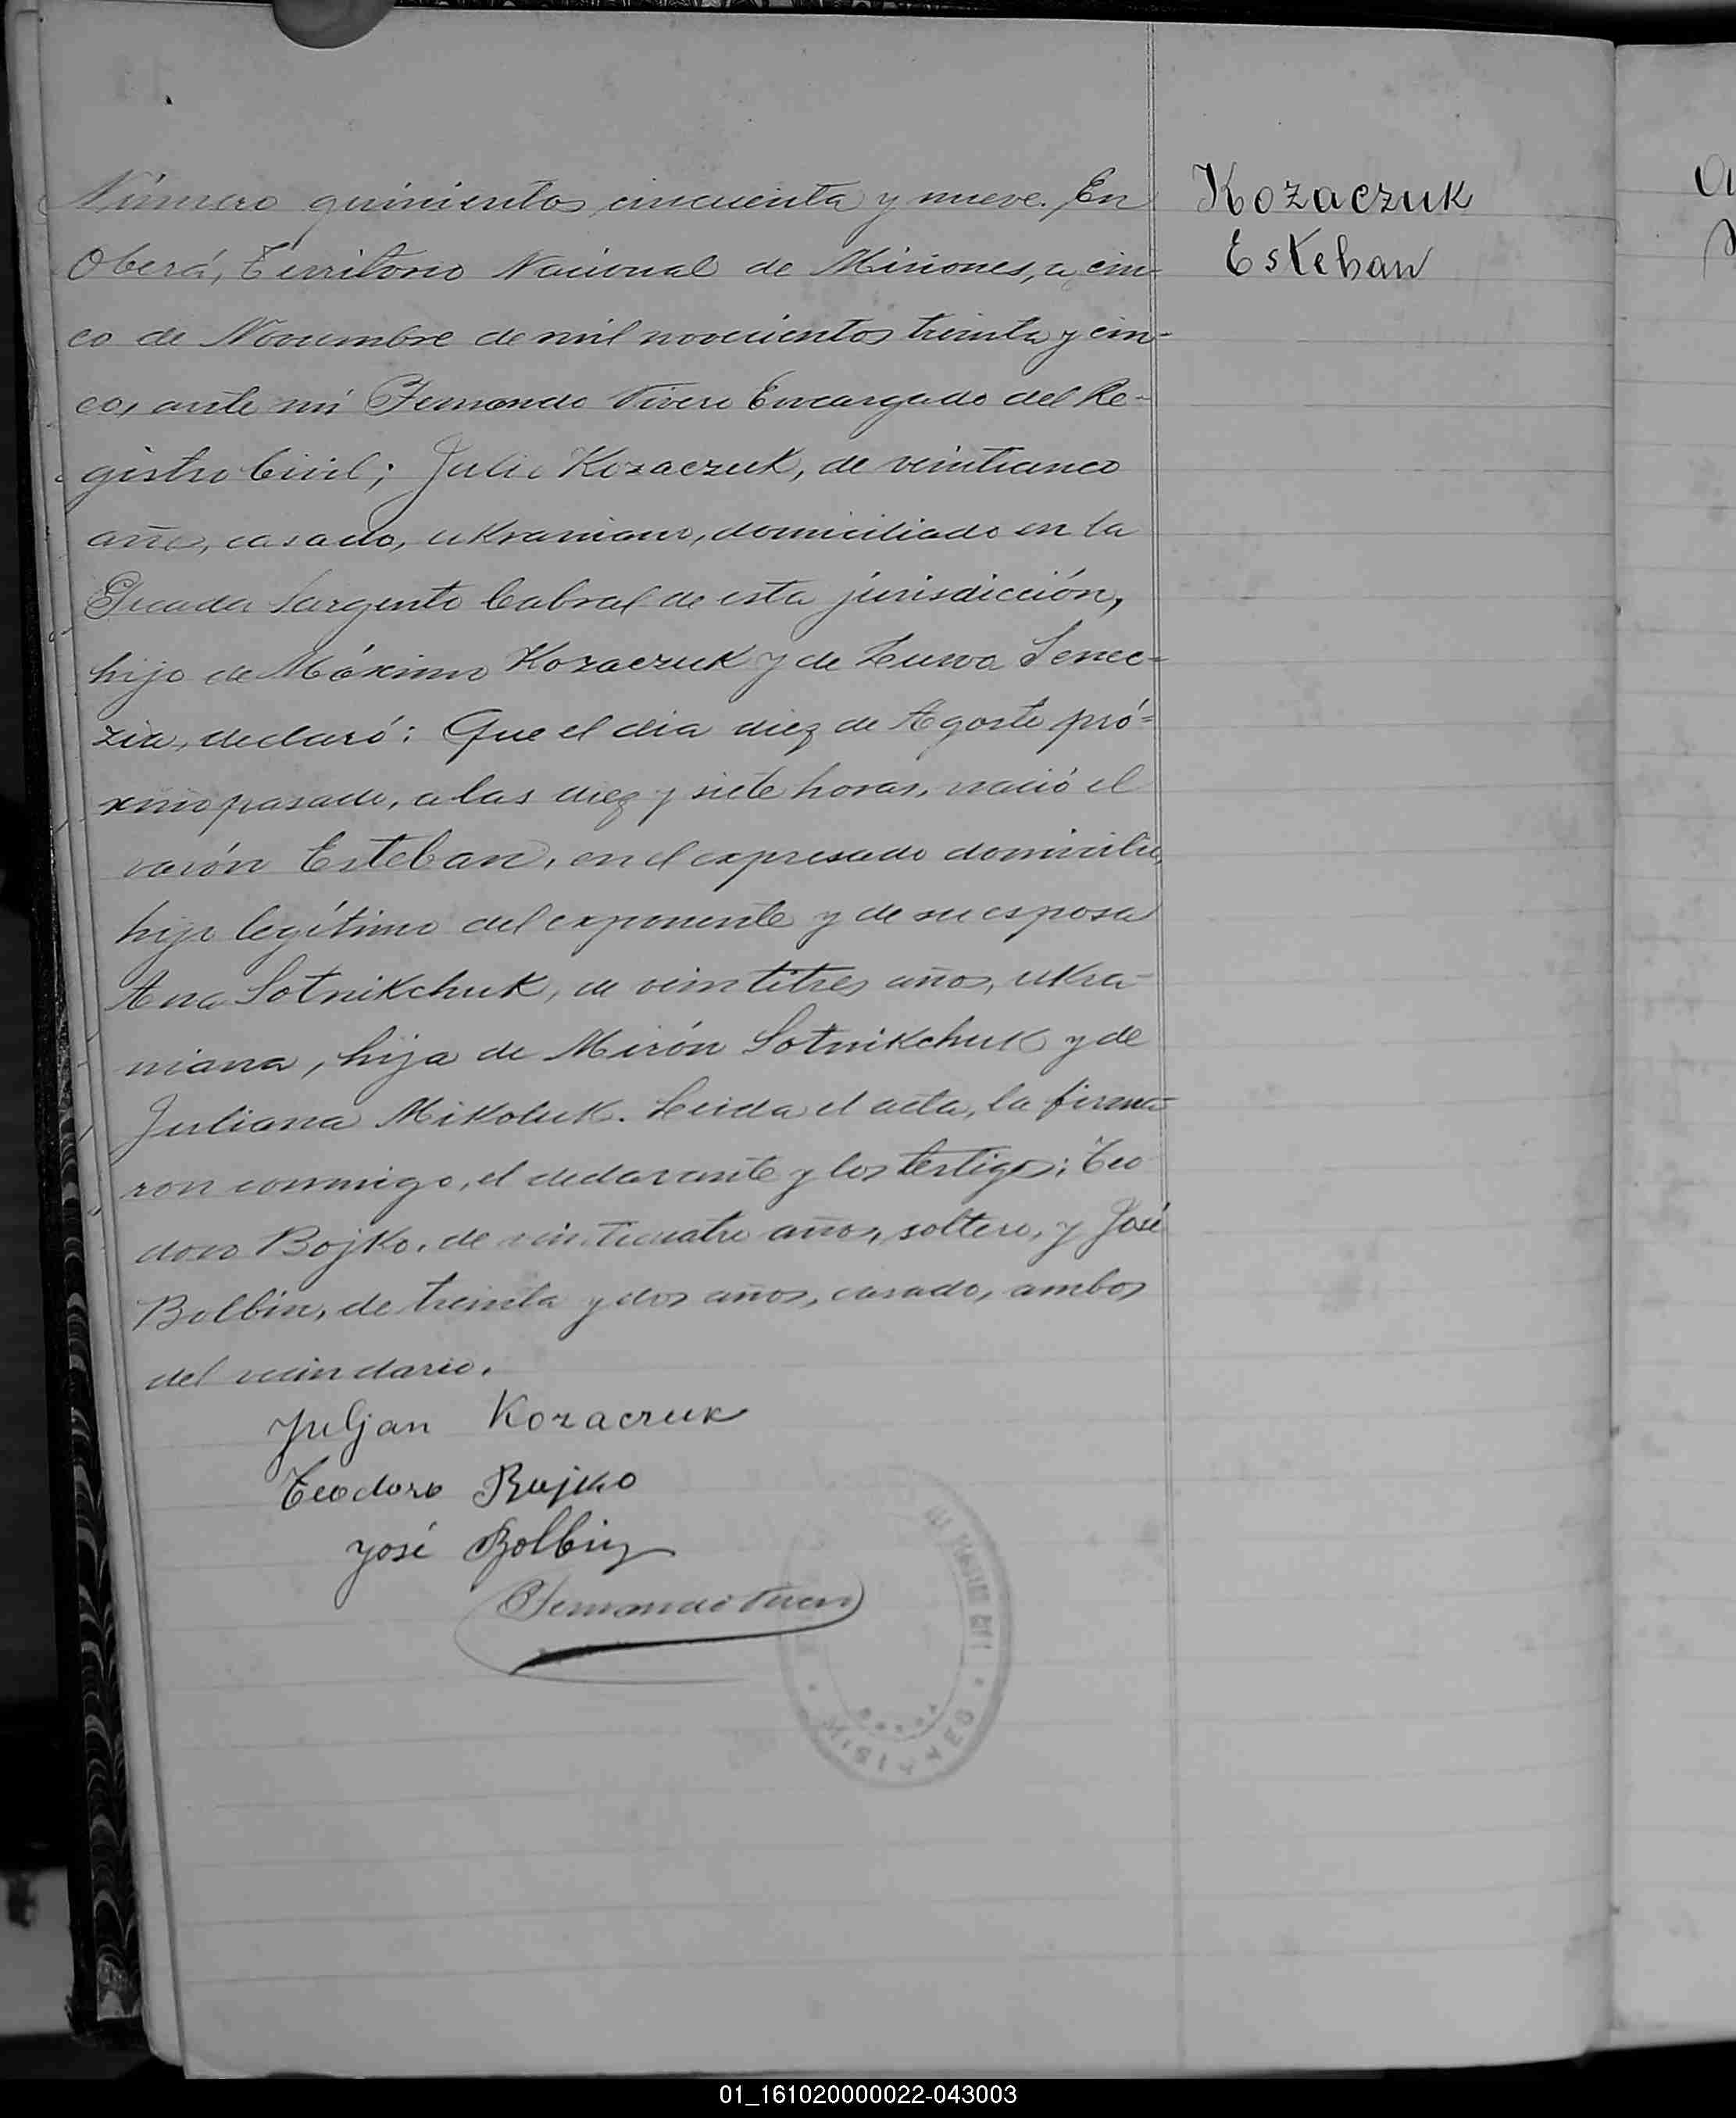 Número quinientos cincuenta y nueve. En
Oberá, Territorio Nacional de Misiones, a cin-
co de Noviembre de mil novecientos treinta y cin-
co, ante mí Fernando Vivero Encargado del Re-
gistro Civil; Julio Kozaczuk, de veinticinco
años, casado, ukraniano, domiciliado en la
Picada Sargento Cabral de esta jurisdicción,
hijo de Máximo Kozaczuk y de
declaró: Que el día diez de Agosto pró-
ximo pasado, a las diez y siete horas, nació el
varón Esteban, en el expresado domicilio,
hijo legítimo del exponente y de su esposa
Ana Sotnikchuk, de veintitres años, ukra-
niana, hija de Mirón Sotnikchuk y de
Juliana Mikoluk. Leida el acta, la firma-
ron conmigo, el declarante y los testigos: Teo
doro Bojko, de veinticuatro años, soltero, y José
Bolbin, de treinta y dos años, casado, ambos
del vecindario.
Juljan Kozaczuk
Teodoro Bujko
José Bolbin
Fernando Vivero
Kozaczuk
Esteban
01_161020000022-043003